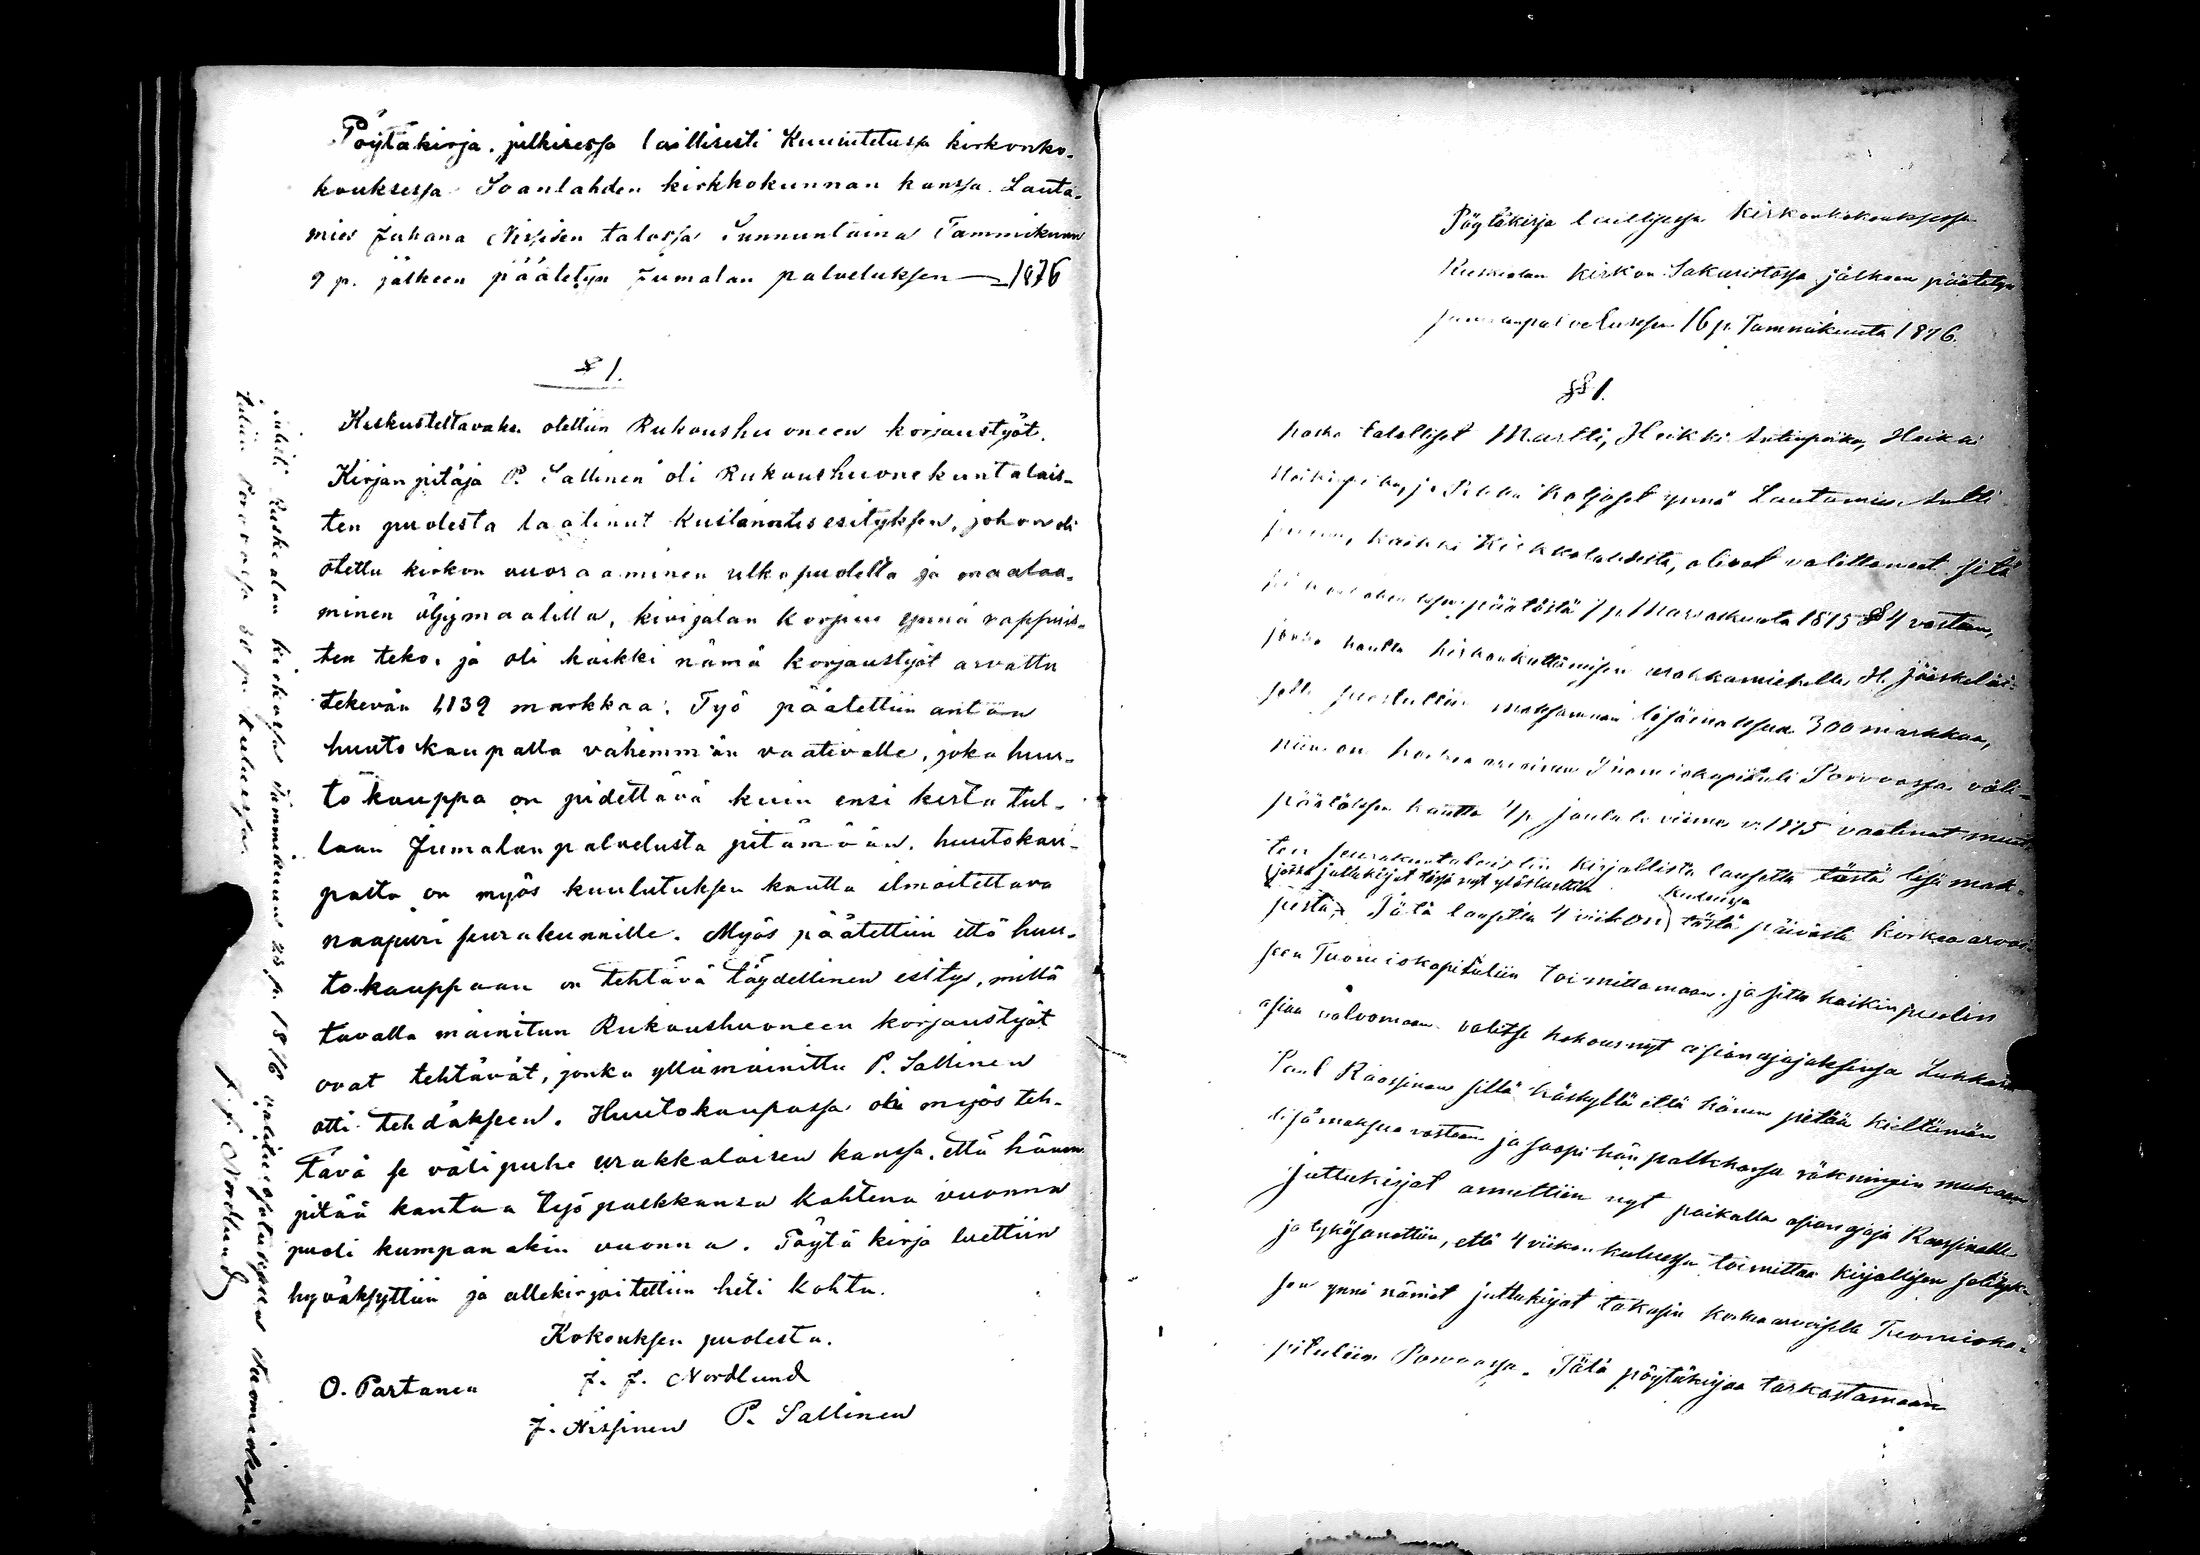 Pöytäkirja, julkisessa laillisesti Kuulutetussa kirkonko-
kouksessa Soanlahden kirkkokunnan kanssa Lauta-
mies Juhana Nissisen talossa Sunnuntaina Tammikuun
9 p. jälkeen päätetyn Jumalan palveluksen — 1876
§ 1.
Keskusteltavaksi otettiin Rukoushuoneen korjaustyöt.
Kirjanpitäjä P. Sallinen oli Rukoushuonekuntalais-
ten puolesta laatinut Kustannus esityksen, johon oli
otettu kirkon vuoraaminen ulkopuolelta ja maalaa-
minen öljymaalilla, kivijalan korjuu ynnä rappuis-
ten teko, ja oli kaikki nämä korjaustyöt arvattu
tekevän 1,139 markkaa. Työ päätettiin antaa
huutokaupalla vähemmän vaativalle, joka huu-
tokauppa on pidettävä kuin ensi kerta tul-
laan Jumalanpalvelusta pitämään, huutokau-
pasta on myös kuulutuksen kautta ilmoitettava
naapuri seurakunnille. Myös päätettiin että huu-
tokauppaan on tehtävä täydellinen esitys, millä
tavalla mainitun Rukoushuoneen korjaustyöt
ovat tehtävät, jonka yllämainittu P. Sallinen
otti tehdäksen. Huutokaupassa oli myös teh-
tävä se välipuhe urakkalaisen kanssa, että hänen
pitää kantaa työpalkkansa kahtena vuonna
puoli kumpanakin vuonna. Pöytäkirja luettiin
hyväksyttiin ja allekirjoitettiin heti kohta.
Kokouksen puolesta.
O. Partanen J. J. Nordlund
J. Nissinen P. Sallinen
Ruskealan kirkossa Tammikuun 23 p. 1876 Tuomiokapi-
tuliin Porvoossa 30 p. kuluessa.
J. J. Nordlund
Pöytäkirja laillisessa Kirkonkokouksessa
Ruskealan kirkon Sakaristossa jälkeen päätetyn
Jumalanpalveluksen 16 p. Tammikuuta 1876.
§ 1.
koska talolliset Martti, Heikki Antinpoika, Heikki
Heikinpoika, ja Pekka Koljoset ynnä Lautamies Antti
kaikki Kirkkolahdesta, olivat valittaneet sitä
päätöstä 7 p. Marraskuuta 1875 § 4 vastaan,
jonka kautta kirkonkattamisen urakkamiehelle, H. Jääskeläi-
selle suostuttiin maksamaan lisämaksua 300 markkaa,
niin on korkea arvoinen Tuomiokapituli Porvoossa väli-
päätöksen kautta 4 p. Joulukuuta viime v. 1875 vaatinut muit-
ten seurakuntalaisten kirjallista lausetta tästä lisä mak-
josta juttukirjat tässä nyt ylösluettiin
sesta, Tätä lausetta 4 viikon kuluessa tästä päivästä korkea arvoi-
seen Tuomiokapituliin toimittamaan, ja sitte kaikinpuolin
asiaa valvomaan valitse kokous nyt asianajajaksensa Lukkari
Paul Raassinan sillä käskyllä että hänen pitää kieltämän
lisämaksua vastaan ja saapi hän palkkansa räkningin mukaan
juttukirjat annettiin nyt paikalla asianajaja Raassinalle
ja tykösanottiin, että 4 viikon kuluessa toimittaa kirjallisen selityk-
sen ynnä nämät juttukirjat takasin korkea arvoiselle Tuomioka-
pituliin Porvoossa. Tätä pöytäkirjaa tarkastamaan